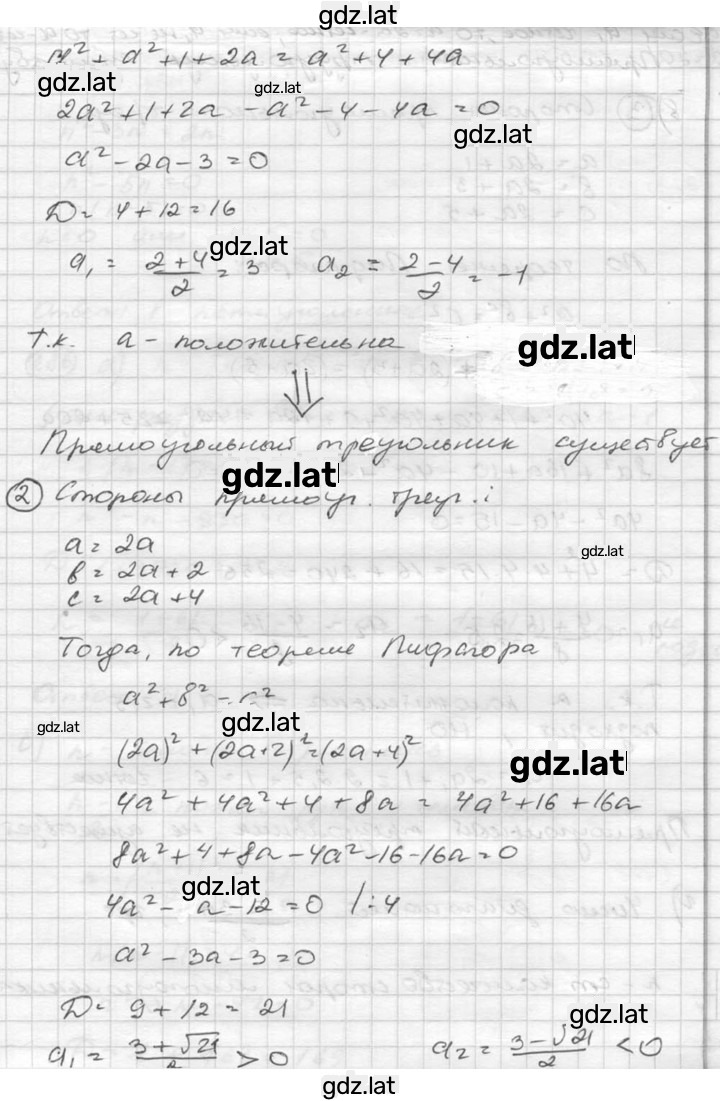 gdz.lat
a² + a² + 1 + 2a = a² + 4 + 4a
gdz.lat gdz.lat
2a² + 1 + 2a - a² - 4 - 4a = 0
gdz.lat
a² - 2a - 3 = 0
D = 4 + 12 = 16
gdz.lat
a₁ = (2+4)/2 = 3 a₂ = (2-4)/2 = -1
Т.к. a - положительна
gdz.lat
⇓
Прямоугольный треугольник существует
gdz.lat
② Стороны прямоуг. треуг.:
a = 2a
gdz.lat
в = 2a + 2
c = 2a + 4
Тогда, по теореме Пифагора
a² + в² = c²
gdz.lat gdz.lat
(2a)² + (2a+2)² = (2a+4)²
gdz.lat
4a² + 4a² + 4 + 8a = 4a² + 16 + 16a
8a² + 4 + 8a - 4a² - 16 - 16a = 0
gdz.lat
4a² - a - 12 = 0 /:4
a² - 3a - 3 = 0
D = 9 + 12 = 21
gdz.lat
a₁ = (3+√21)/2 > 0 a₂ = (3-√21)/2 < 0
gdz.lat